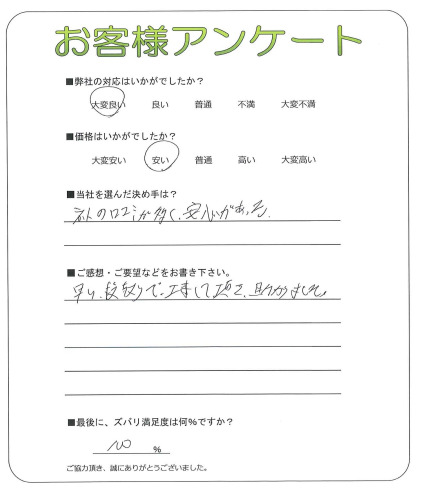 お客様アンケート
■弊社の対応はいかがでしたか？
大変良い 良い 普通 不満 大変不満
■価格はいかがでしたか？
大変安い 安い 普通 高い 大変高い
■当社を選んだ決め手は？
ネットの口コミが多く、安心があった。
■ご感想・ご要望などをお書き下さい。
早い段取りで工事して頂き、助かりました。
■最後に、ズバリ満足度は何%ですか？
100 %
ご協力頂き、誠にありがとうございました。